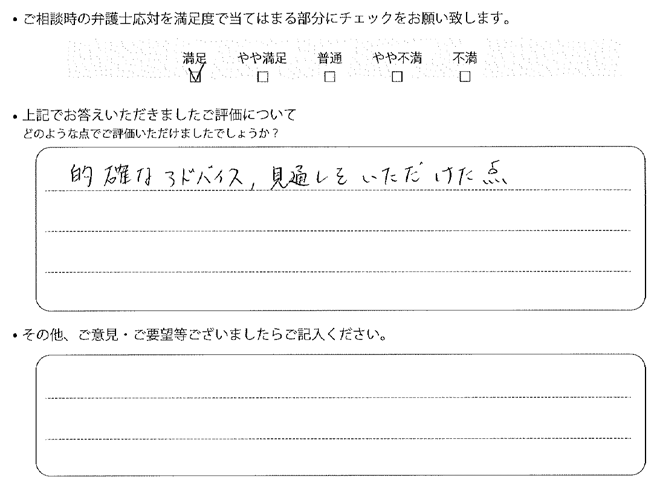 ・ご相談時の弁護士応対を満足度で当てはまる部分にチェックをお願い致します。
満足 やや満足 普通 やや不満 不満
☑ □ □ □ □
・上記でお答えいただきましたご評価について
どのような点でご評価いただけましたでしょうか？
的確なアドバイス，見通しをいただけた点
・その他、ご意見・ご要望等ございましたらご記入ください。